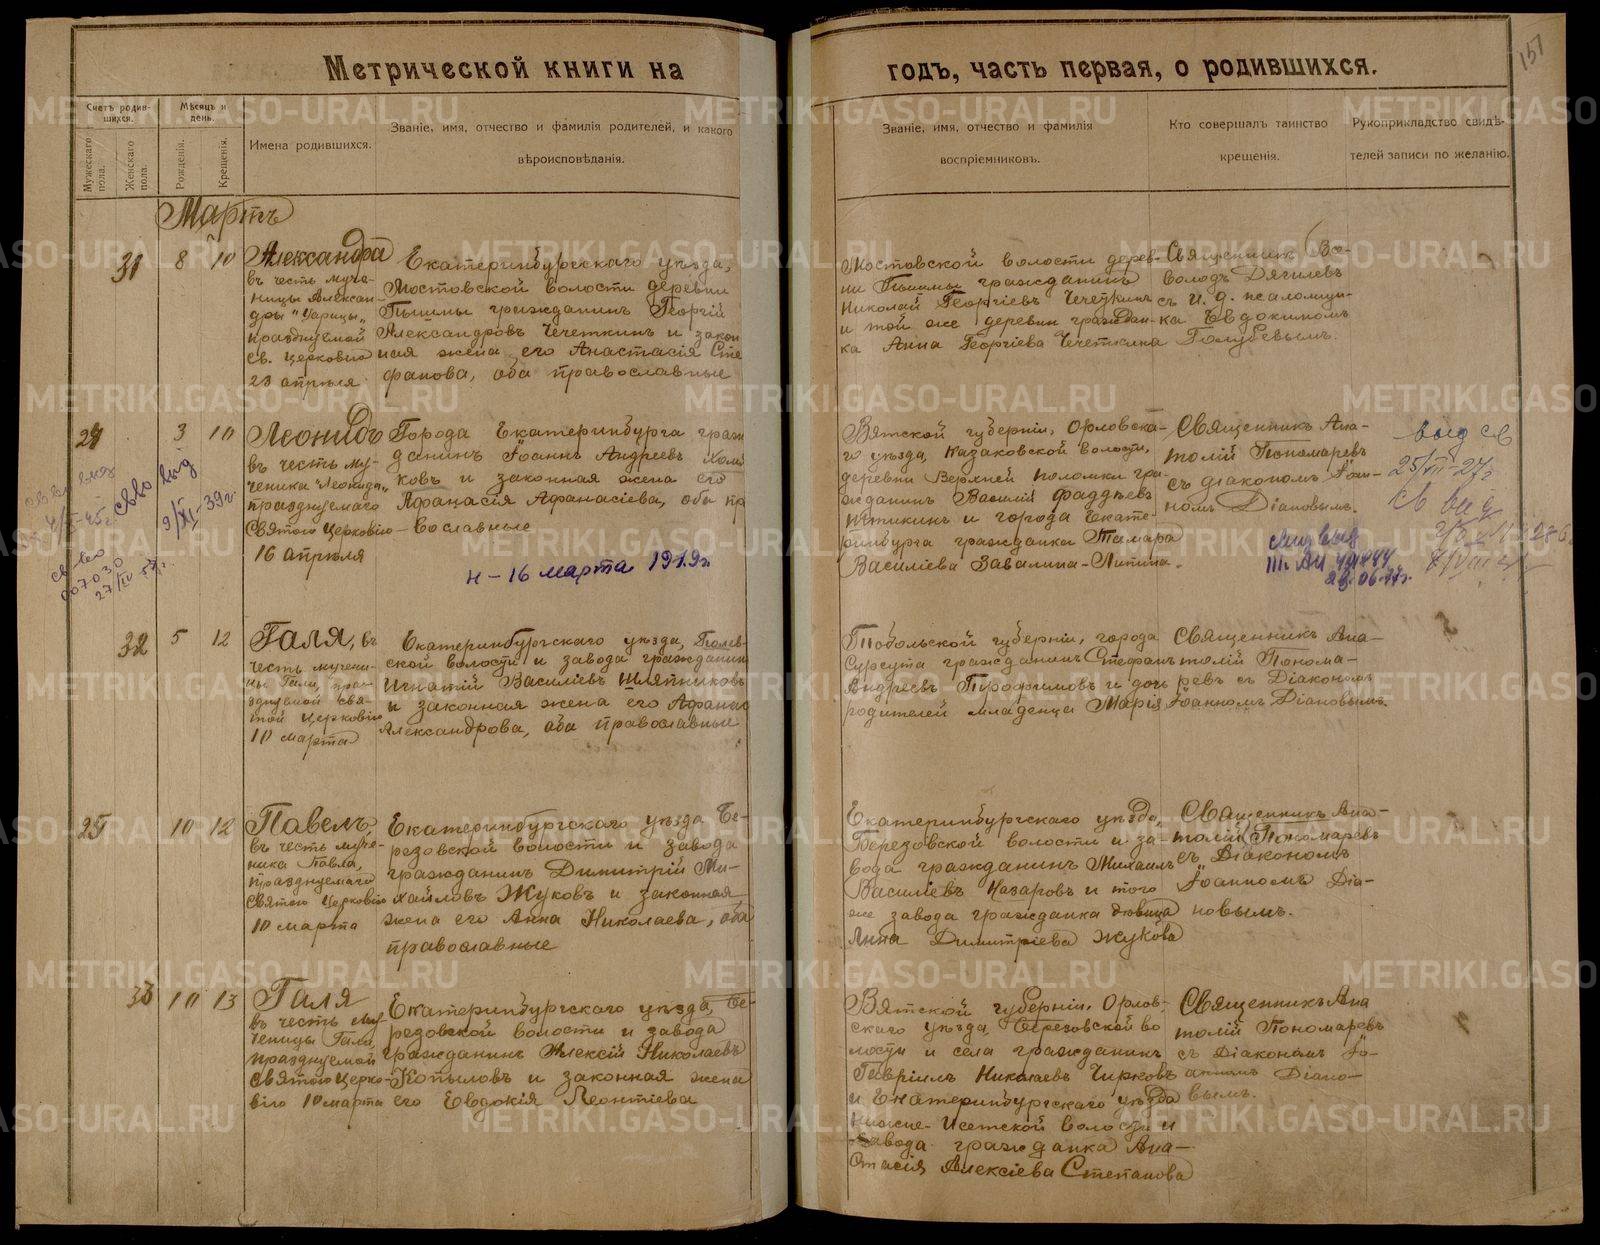 Метрической книги на
годъ, часть первая, о родившихся.
157
Счетъ родив-
шихся.
Мѣсяцъ и
день.
Мужескаго
пола.
Женскаго
пола.
Рожденія.
Крещенія.
Имена родившихся.
Званіе, имя, отчество и фамилія родителей, и какого
вѣроисповѣданія.
Званіе, имя, отчество и фамилія
воспріемниковъ.
Кто совершалъ таинство
крещенія.
Рукоприкладство свидѣ-
телей записи по желанію.
Мартъ
31 8 10
Александра
въ честь муче-
ницы Алексан-
дры "Царицы",
празднуемой
св. Церковію
23 апрѣля
Екатеринбургскаго уѣзда,
Мостовской волости деревни
Пышмы гражданинъ Георгій
Александровъ Чечеткинъ и закон
ная жена его Анастасія Сте
фанова, оба православные
Мостовской волости дерев-
ни Пышмы гражданинъ
Николай Георгіевъ Чечеткинъ
и той же деревни граждан-
ка Анна Георгіева Чечеткина
Священникъ Все-
володъ Дягилевъ
съ и. д. псаломщи-
ка Евдокимомъ
Голубевымъ.
24 3 10
Леонидъ
въ честь му-
ченика "Леонида",
празднуемаго
Святою Церковію
16 апрѣля
Города Екатеринбурга граж
данинъ Іоаннъ Андреевъ Холм
ковъ и законная жена его
Афанасія Афанасіева, оба пр
вославные
н - 16 марта 1919г.
Вятской губерніи, Орловска-
го уѣзда, Казаковской волости,
деревни Верхней Поломки гра-
жданинъ Василій Фаддѣевъ
и города Екате-
ринбурга гражданка Тамара
Василіева Завалина-Липина.
Священникъ Ана-
толій Пономаревъ
съ діакономъ Іоан-
номъ Діановымъ.
выд св
25/VII-27г
св выд
9/XI-39г.
св-во выд
св-во
007030
27/IV 57г.
32 5 12
Галя, въ
честь мучени-
цы Гали, праз-
днуемой свя-
той Церковію
10 марта
Екатеринбургскаго уѣзда, Полев-
ской волости и завода гражданин
Игнатій Василіевъ Шляпниковъ
и законная жена его Афанас
Александрова, оба православные
Тобольской губерніи, города
Сургута гражданинъ Стефанъ
Андреевъ Трофимовъ и дочь
родителей младенца Марія
Священникъ Ана-
толій Понома-
ревъ съ Діакономъ
Іоанномъ Діановымъ.
25 10 12
Павелъ,
въ честь муче-
ника Павла,
празднуемаго
Святою Церковію
10 марта
Екатеринбургскаго уѣзда Бе-
резовской волости и завода
гражданинъ Димитрій Ми-
хайловъ Жуковъ и законная
жена его Анна Николаева, оба
православные
Екатеринбургскаго уѣзда,
Березовской волости и за-
вода гражданинъ Михаилъ
Василіевъ Назаровъ и того
же завода гражданка дѣвица
Анна Димитріева Жукова
Священникъ Ана-
толій Пономаревъ
съ Діакономъ
Іоанномъ Діа-
новымъ.
33 10 13
Галя
въ честь му-
ченицы Гали,
празднуемой
Святою Церко-
вію 10 марта
Екатеринбургскаго уѣзда, Бе-
резовской волости и завода
гражданинъ Алексій Николаевъ
Копыловъ и законная жена
его Евдокія Леонтіева
Вятской губерніи, Орлов-
скаго уѣзда, Березовской во
лости и села гражданинъ
Гавріилъ Николаевъ Чирковъ
и Екатеринбургскаго уѣзда
Нижне-Исетской волости и
завода гражданка Ана-
стасія Алексіева Степанова
Священникъ Ана
толій Пономаревъ
съ Діакономъ Іо-
анномъ Діано-
вымъ.
METRIKI.GASO-URAL.RU